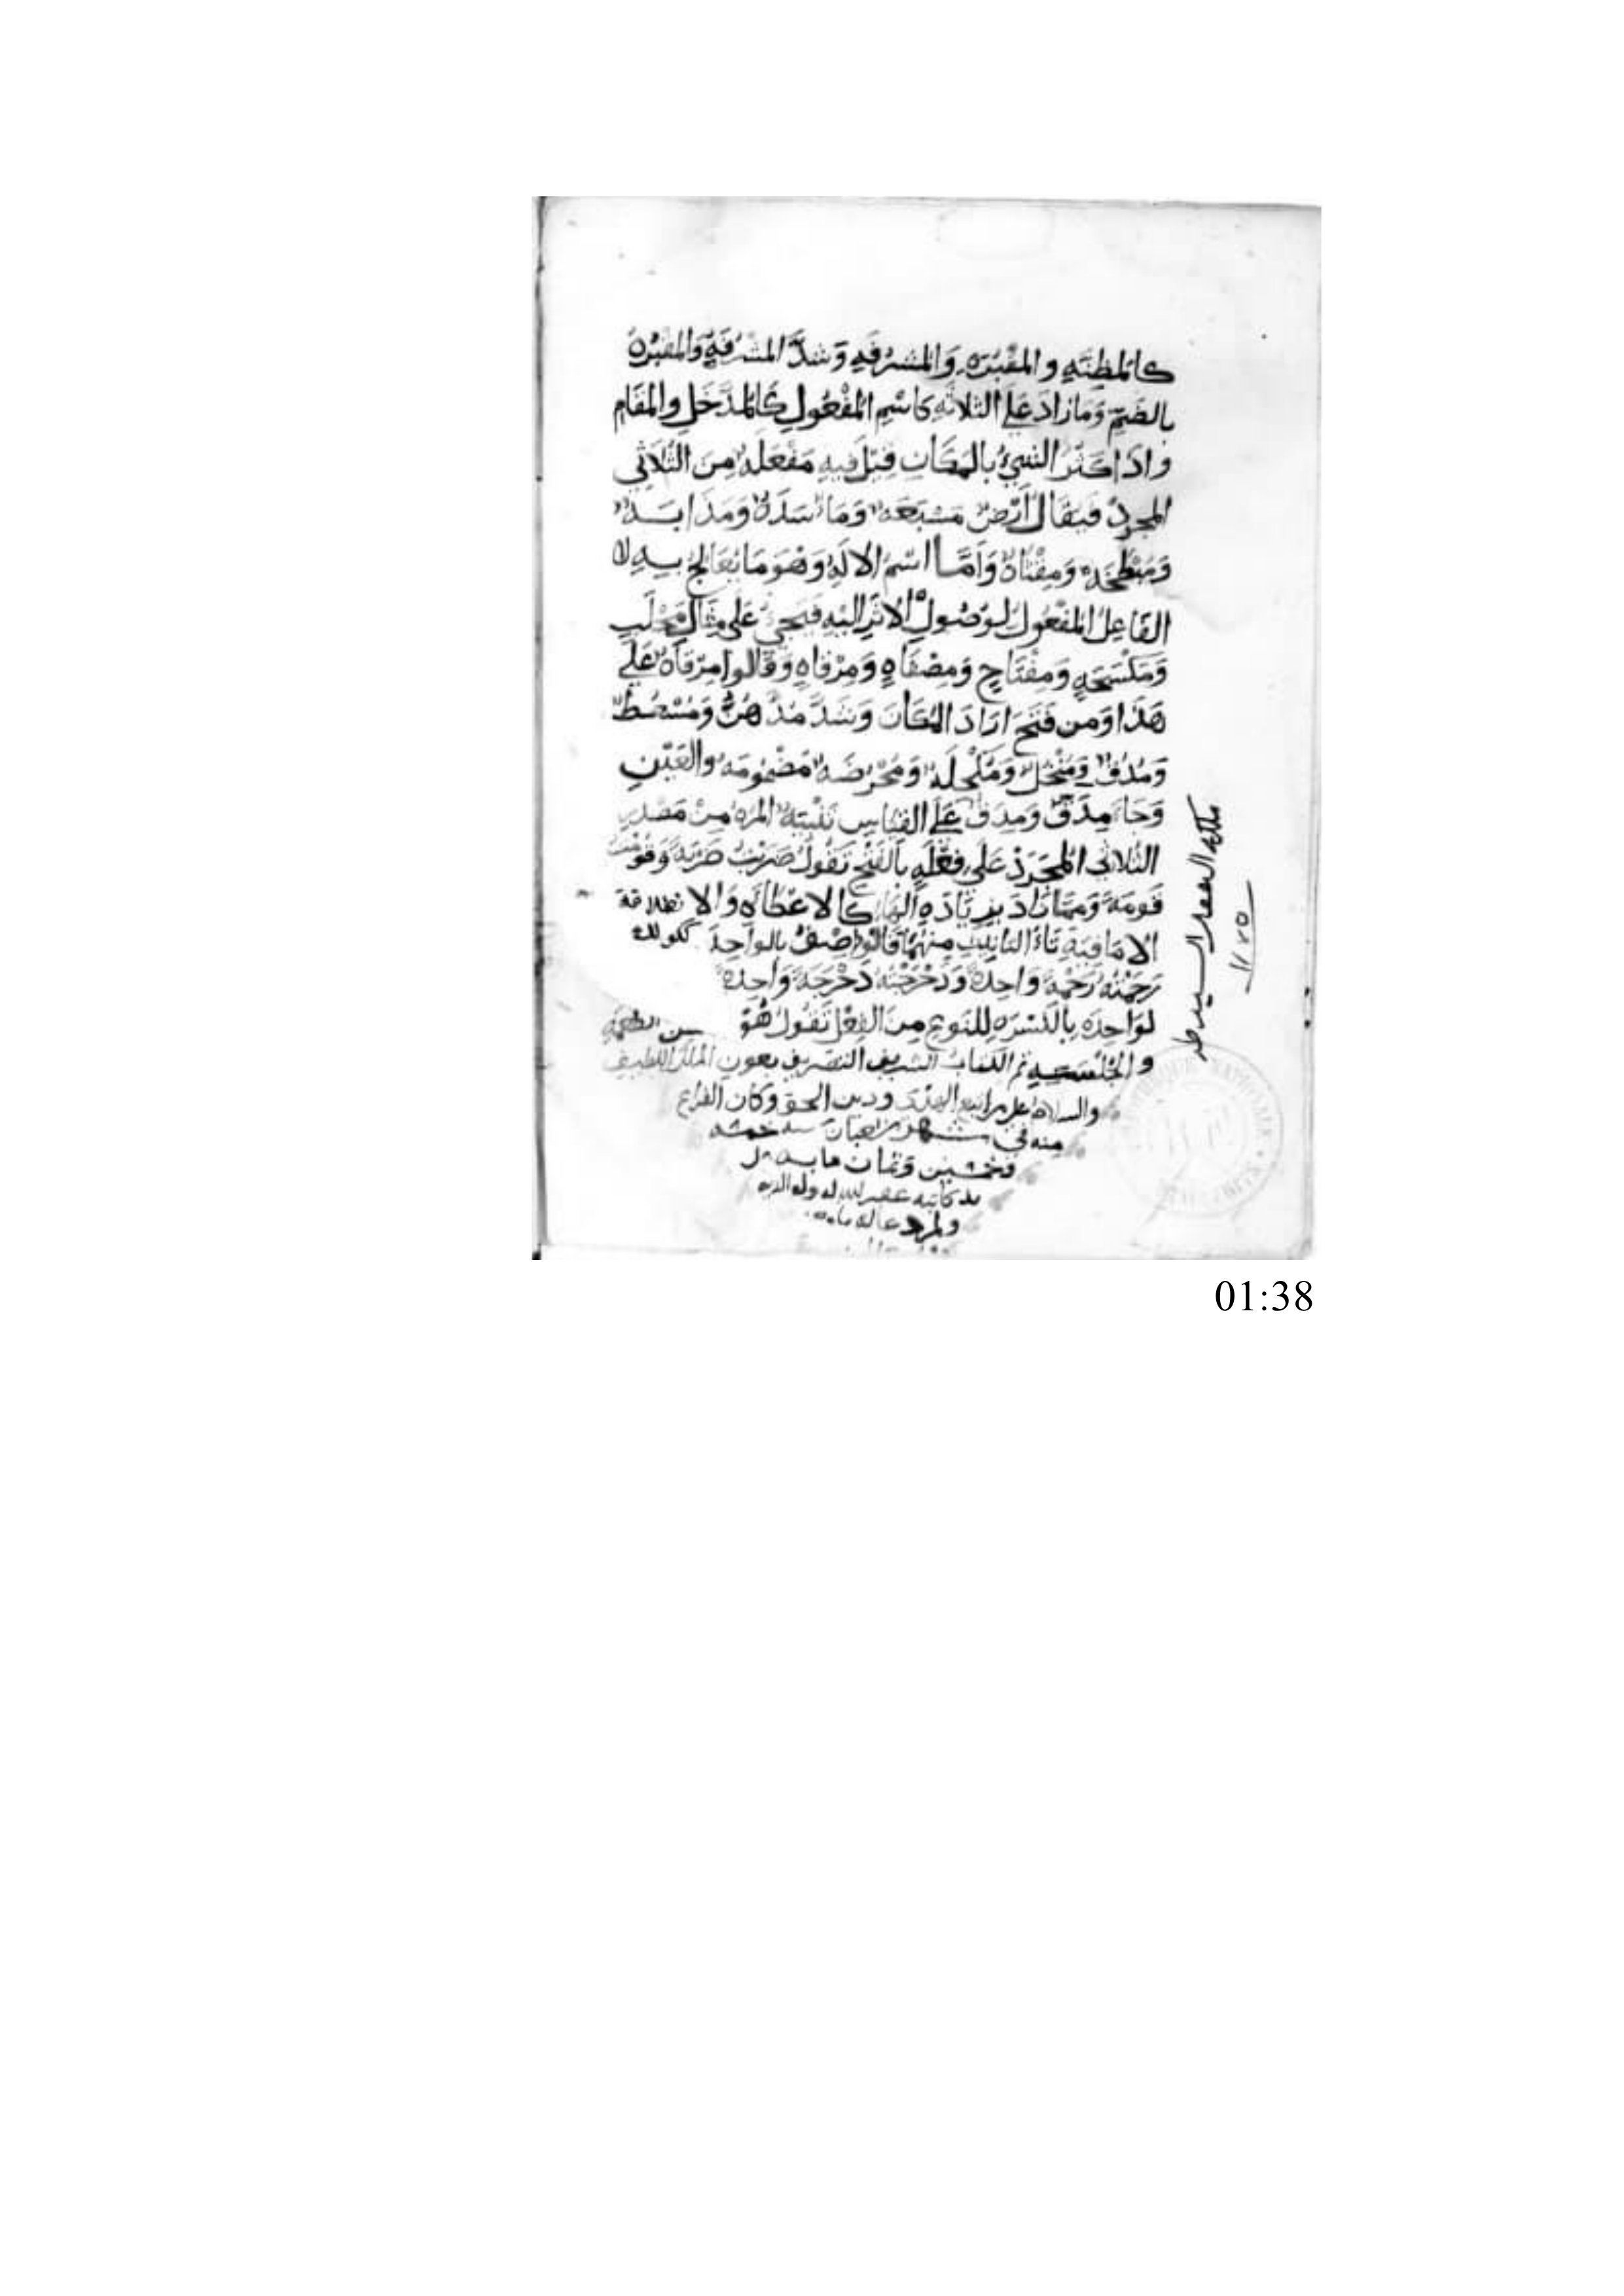 كالمظِنَّهِ والمقْبُرَهِ وَالمشرُفَهِ وَشذَّ المَشْرُقَهُ وَالمقْبُرَهُ
بالضَمِّ وَمَازادَ عَلَى الثلاثَهِ كاسْمِ المفْعُولِ كَالمُدْخَلِ والمُقَامِ
واذَا كَثُرَ الشيءُ بالمَكَانِ قِيْلَ فِيهِ مَفْعَلَهٌ مِنَ الثُلاثي
المجردِ فيُقالُ اَرْضٌ مَسْبَعَهٌ وَمَاسَدَهٌ وَمَذابَهٌ
وَمَبْطَخَهٌ وَمِقْثاهٌ وَاَمَّا اسْمُ الالَهِ وَهْوَ مَا يُعَالجُ بِهِ
الفَاعِلُ المَفْعُولَ لِوُصُولِ الاثرِ اليْهِ فيَجئُ عَلى مِثالِ مِحْلَبٍ
وَمَكْسَحَهٍ وَمِفْتَاحٍ وَمِصْفَاهٍ وَمِرْقاهٍ وَقالوا مِرْقاهٌ عَلَى
هَذا وَمن فَتَحَ ارَادَ المَكَانَ وَشَذَّ مُدْهُنٌ وَمُسْعُطٌ
وَمُدُقٌ وَمُنْخُلٌ وَمُكْحُلَهٌ وَمُحْرُضَهٌ مَضْمُومَهُ والعَيْنِ
وَجَاءَ مِدَقٌّ وَمِدَقَهٌ عَلَى القيَاسِ تَنْبِيْهٌ المَرَّهُ مِنْ مَصْدَرِ
الثلاثي المجَرَدْ عَلى فَعْلَهٍ بالفَتْحِ تَقُولُ ضَرَبْتُ ضَرْبَهً وَقُمْتُ
قَومَهً وَممَّا زادَ بِزِيَادَهِ الهَاءِ كالاعْطاءَهِ وَالانطلاقة
الا مَا فِيهِ تاءُ التانِيثِ مِنْهُمَا فَالوَصْفُ بالواحِدَه كقولك
رَحِمْتُهُ رَحْمَهً وَاحِدَهً وَدَحْرَجْتُهُ دَحْرَجَهً وَاحِدَهً
لوَاحِدَه بِالكَسْرَهِ لِلنَوعِ مِنَ الفِعْلِ تَقُولُ هُوَ حسن الطِعْمَهِ
والجِلْسَهِ تم الكتاب الشريف التصريف بعون الملك اللطيف
والسلام على من اتبع الهدى ودين الحق وكان الفراغ
منه في شهر شعبان سنه خمسه
وخمسين وثمان مايه
يد كاتبه غفر الله له ولوالديه
ولمن دعا له
ملكه الفقير السيد طه
١١٧٥
01:38